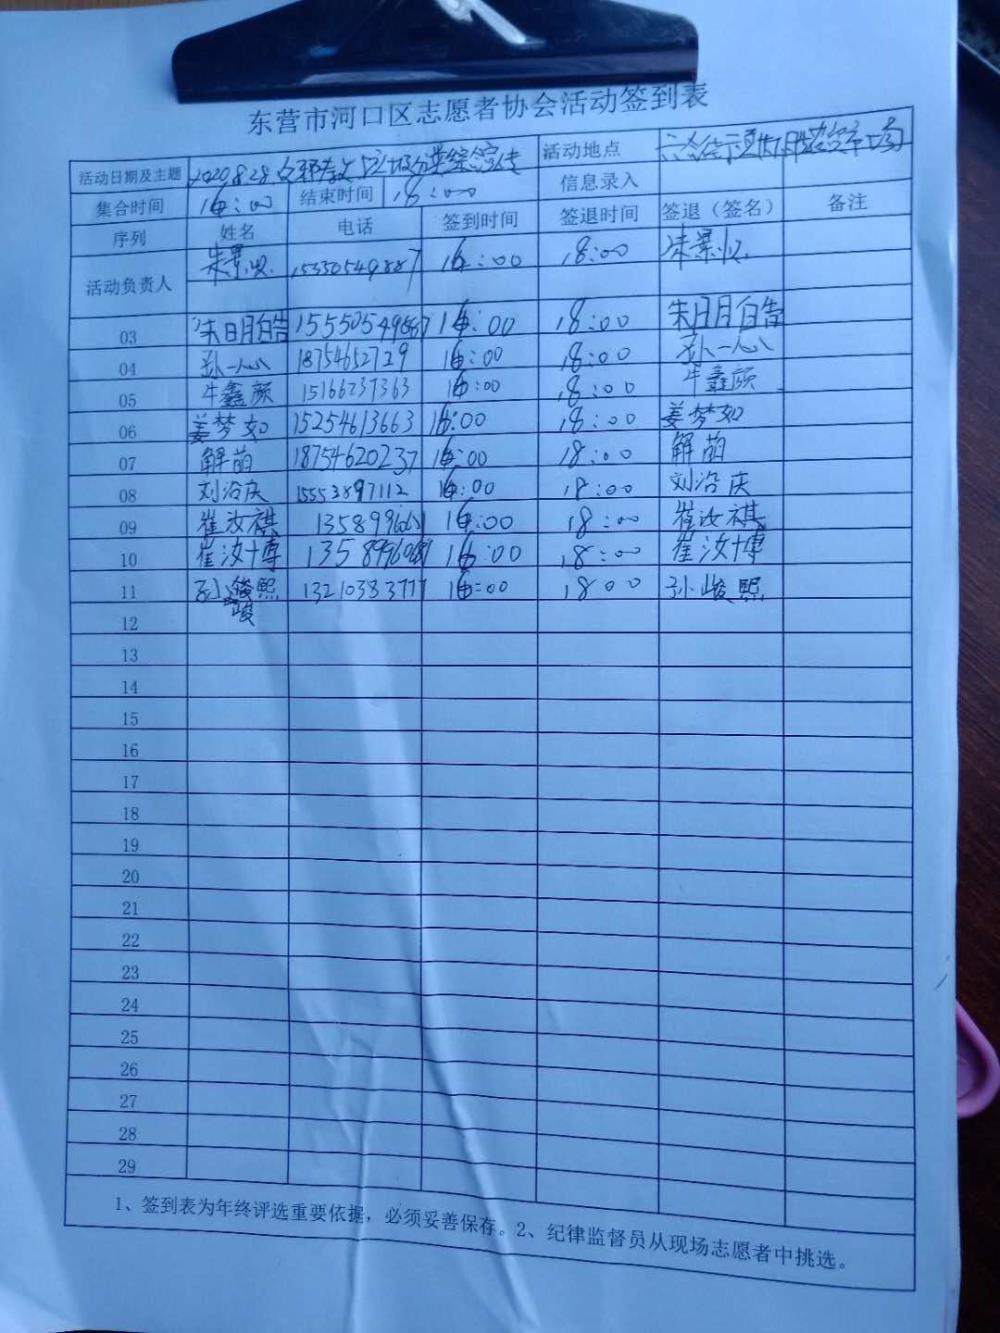 东营市河口区志愿者协会活动签到表
活动日期及主题 2020.8.28 活动地点
集合时间 16:00 结束时间 18:00 信息录入
序列 姓名 电话 签到时间 签退时间 签退（签名） 备注
活动负责人 朱景 16:00 18:00 朱景
03 朱明皓 16:00 18:00 朱明皓
04 孙一心 18754652729 16:00 18:00 孙一心
05 牛鑫颜 15166237363 16:00 18:00 牛鑫颜
06 姜梦如 15254613663 16:00 18:00 姜梦如
07 解萌 18754620237 16:00 18:00 解萌
08 刘洺庆 15553897112 16:00 18:00 刘洺庆
09 崔汝祺 16:00 18:00 崔汝祺
10 崔汝博 16:00 18:00 崔汝博
11 孙峻熙 16:00 1800 孙峻熙
12
13
14
15
16
17
18
19
20
21
22
23
24
25
26
27
28
29
1、签到表为年终评选重要依据，必须妥善保存。2、纪律监督员从现场志愿者中挑选。